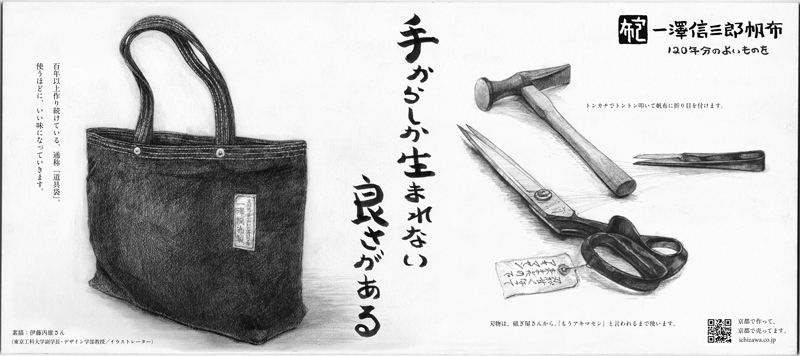 一澤信三郎帆布
120年分のよいものを
手からしか生まれない
良さがある
百年以上作り続けている、通称「道具袋」。
使うほどに、いい味になっていきます。
トンカチでトントン叩いて帆布に折り目を付けます。
刃物は、砥ぎ屋さんから、「もうアキマセン」と言われるまで使います。
素描：伊藤丙雄さん
(東京工科大学副学長・デザイン学部教授／イラストレーター)
京都で作って、
京都で売ってます。
ichizawa.co.jp